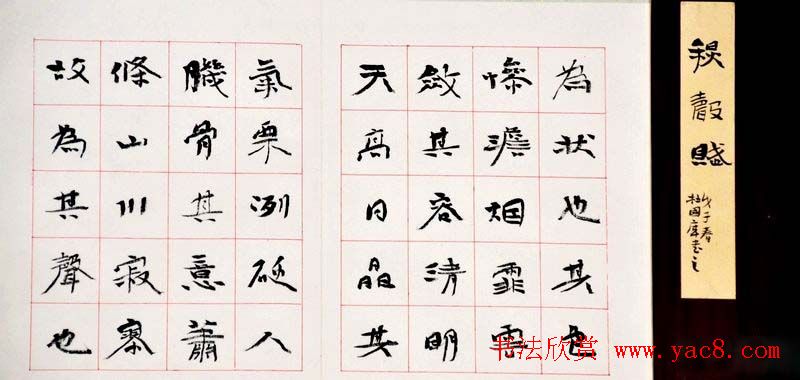 秋聲賦
戊子春
為狀也其色
慘澹烟霏雲
斂其容清明
天高日晶其
氣栗冽砭人
肌骨其意蕭
條山川寂寥
故為其聲也
书法欣赏 www.yac8.com